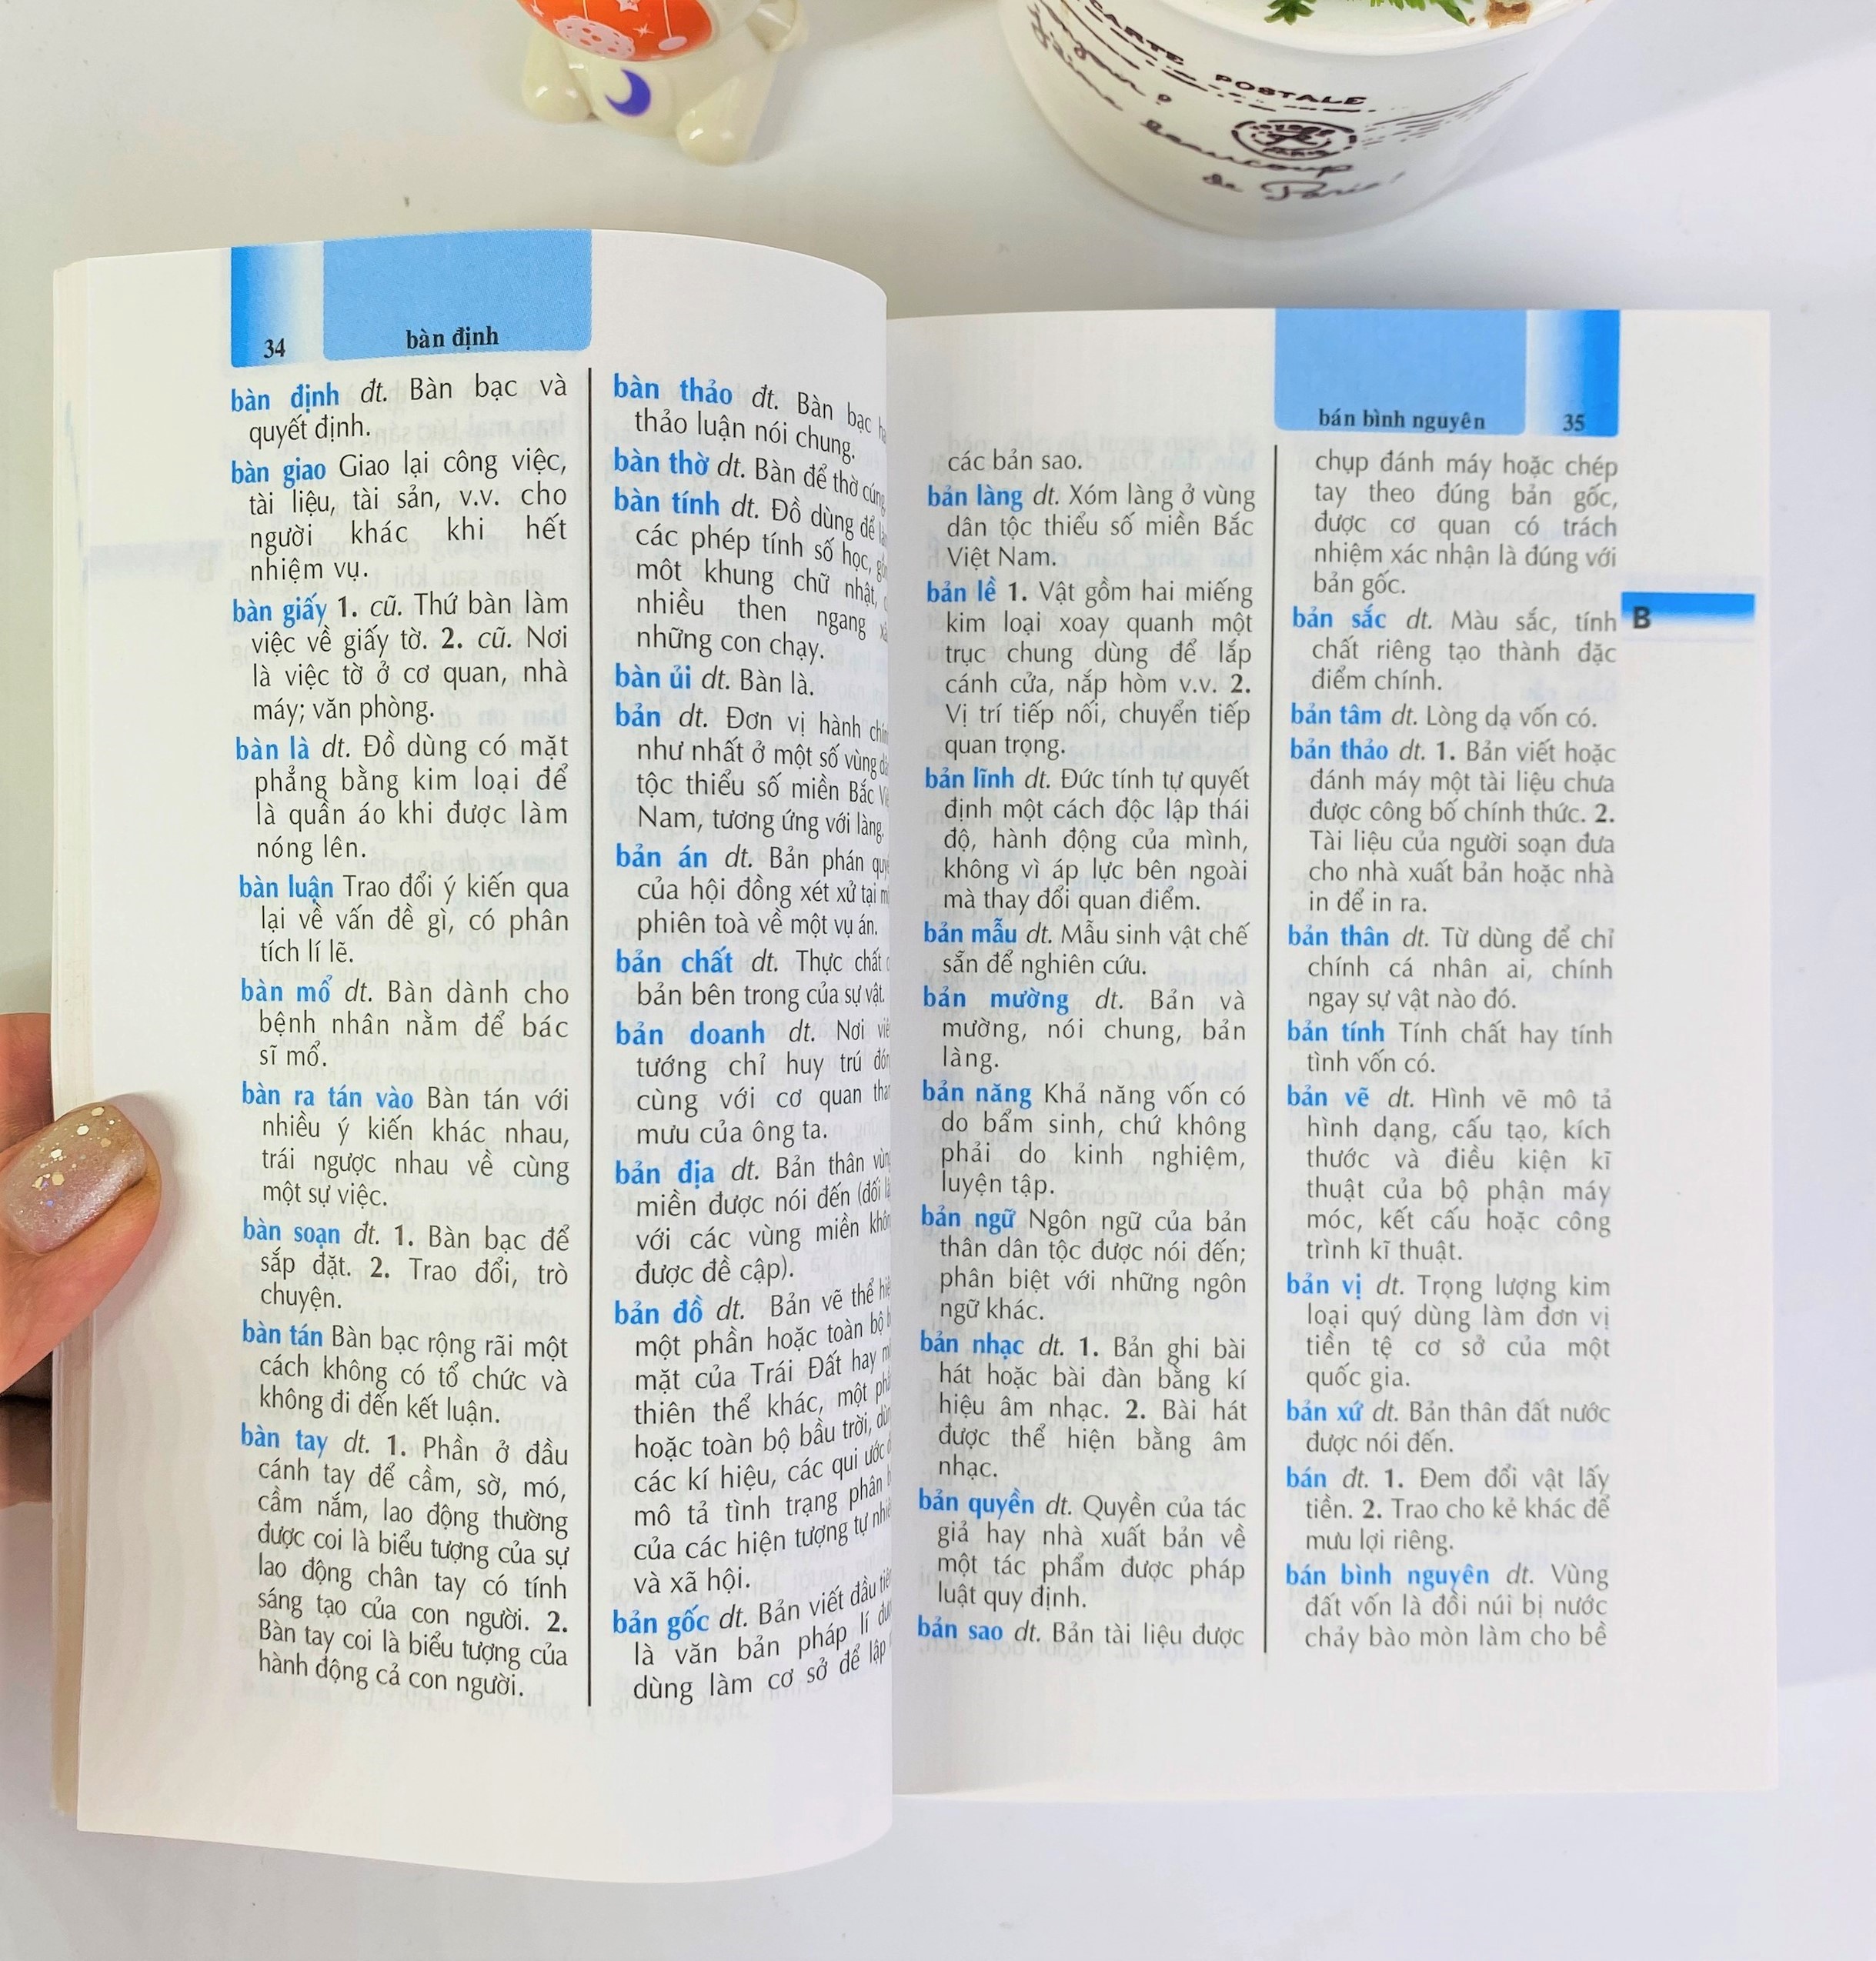 CARTE POSTALE
beaucoup
de Paris!
34
bàn định
bàn định đt. Bàn bạc và
quyết định.
bàn giao Giao lại công việc,
tài liệu, tài sản, v.v. cho
người khác khi hết
nhiệm vụ.
bàn giấy 1. cũ. Thứ bàn làm
việc về giấy tờ. 2. cũ. Nơi
là việc tờ ở cơ quan, nhà
máy; văn phòng.
bàn là dt. Đồ dùng có mặt
phẳng bằng kim loại để
là quần áo khi được làm
nóng lên.
bàn luận Trao đổi ý kiến qua
lại về vấn đề gì, có phân
tích lí lẽ.
bàn mổ dt. Bàn dành cho
bệnh nhân nằm để bác
sĩ mổ.
bàn ra tán vào Bàn tán với
nhiều ý kiến khác nhau,
trái ngược nhau về cùng
một sự việc.
bàn soạn đt. 1. Bàn bạc để
sắp đặt. 2. Trao đổi, trò
chuyện.
bàn tán Bàn bạc rộng rãi một
cách không có tổ chức và
không đi đến kết luận.
bàn tay dt. 1. Phần ở đầu
cánh tay để cầm, sờ, mó,
cầm nắm, lao động thường
được coi là biểu tượng của sự
lao động chân tay có tính
sáng tạo của con người. 2.
Bàn tay coi là biểu tượng của
hành động cả con người.
bàn thảo đt. Bàn bạc
thảo luận nói chung.
bàn thờ dt. Bàn để thờ cúng
bàn tính dt. Đồ dùng để
các phép tính số học,
môt khung chữ nhật,
nhiều then ngang
những con chạy.
bàn ủi dt. Bàn là.
bản dt. Đơn vị hành
như nhất ở một số vùng
tộc thiểu số miền Bắc
Nam, tương ứng với làng.
bản án dt. Bản phán
của hội đồng xét xử tại
phiên toà về một vụ án.
bản chất dt. Thực chất
bản bên trong của sự vật.
bản doanh dt. Nơi
tướng chỉ huy trú
cùng với cơ quan
mưu của ông ta.
bản địa dt. Bản thân
miền được nói đến (đối
với các vùng miền
được đề cập).
bản đồ dt. Bản vẽ thể
một phần hoặc toàn bộ
mặt của Trái Đất hay
thiên thể khác, một
hoặc toàn bộ bầu trời,
các kí hiệu, các qui ước
mô tả tình trạng phân
của các hiện tượng tự
và xã hội.
bản gốc dt. Bản viết đầu
là văn bản pháp lí
dùng làm cơ sở để lập
bán bình nguyên
35
các bản sao.
bản làng dt. Xóm làng ở vùng
dân tộc thiểu số miền Bắc
Việt Nam.
bản lề 1. Vật gồm hai miếng
kim loại xoay quanh một
trục chung dùng để lắp
cánh cửa, nắp hòm v.v. 2.
Vị trí tiếp nối, chuyển tiếp
quan trọng.
bản lĩnh dt. Đức tính tự quyết
định một cách độc lập thái
độ, hành động của mình,
không vì áp lực bên ngoài
mà thay đổi quan điểm.
bản mẫu dt. Mẫu sinh vật chế
sẵn để nghiên cứu.
bản mường dt. Bản và
mường, nói chung, bản
làng.
bản năng Khả năng vốn có
do bẩm sinh, chứ không
phải do kinh nghiệm,
luyện tập.
bản ngữ Ngôn ngữ của bản
thân dân tộc được nói đến;
phân biệt với những ngôn
ngữ khác.
bản nhạc dt. 1. Bản ghi bài
hát hoặc bài đàn bằng kí
hiệu âm nhạc. 2. Bài hát
được thể hiện bằng âm
nhạc.
bản quyền dt. Quyền của tác
giả hay nhà xuất bản về
một tác phẩm được pháp
luật quy định.
bản sao dt. Bản tài liệu được
chụp đánh máy hoặc chép
tay theo đúng bản gốc,
được cơ quan có trách
nhiệm xác nhận là đúng với
bản gốc.
bản sắc dt. Màu sắc, tính
chất riêng tạo thành đặc
điểm chính.
bản tâm dt. Lòng dạ vốn có.
bản thảo dt. 1. Bản viết hoặc
đánh máy một tài liệu chưa
được công bố chính thức. 2.
Tài liệu của người soạn đưa
cho nhà xuất bản hoặc nhà
in để in ra.
bản thân dt. Từ dùng để chỉ
chính cá nhân ai, chính
ngay sự vật nào đó.
bản tính Tính chất hay tính
tình vốn có.
bản vẽ dt. Hình vẽ mô tả
hình dạng, cấu tạo, kích
thước và điều kiện kĩ
thuật của bộ phận máy
móc, kết cấu hoặc công
trình kĩ thuật.
bản vị dt. Trọng lượng kim
loại quý dùng làm đơn vị
tiền tệ cơ sở của một
quốc gia.
bản xứ dt. Bản thân đất nước
được nói đến.
bán đt. 1. Đem đổi vật lấy
tiền. 2. Trao cho kẻ khác để
mưu lợi riêng.
bán bình nguyên dt. Vùng
đất vốn là đồi núi bị nước
chảy bào mòn làm cho bề
B